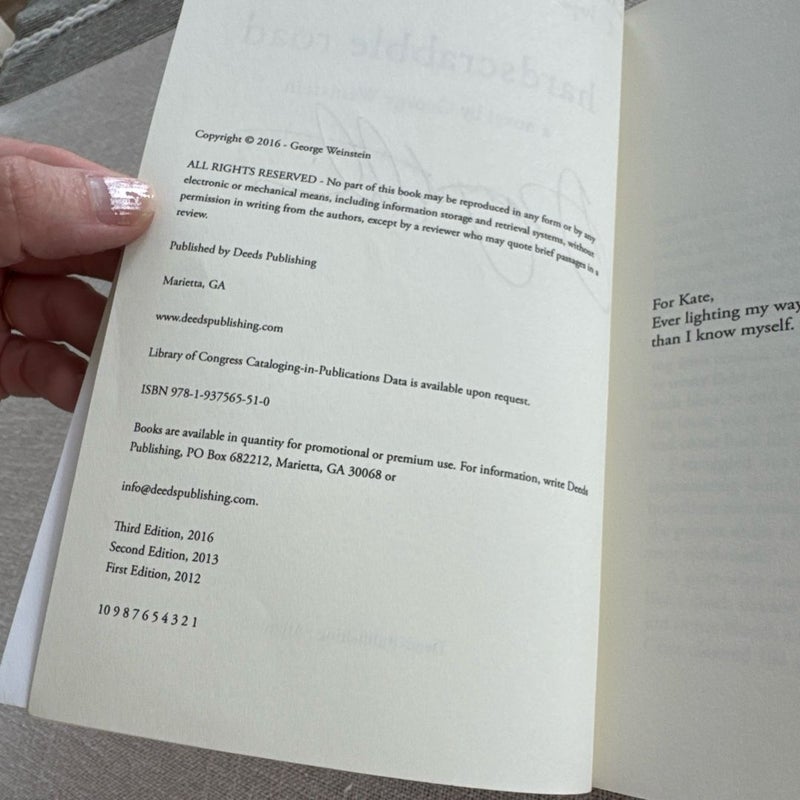 Copyright © 2016 - George Weinstein
ALL RIGHTS RESERVED - No part of this book may be reproduced in any form or by any
electronic or mechanical means, including information storage and retrieval systems, without
permission in writing from the authors, except by a reviewer who may quote brief passages in a
review.
Published by Deeds Publishing
Marietta, GA
www.deedspublishing.com
Library of Congress Cataloging-in-Publications Data is available upon request.
ISBN 978-1-937565-51-0
Books are available in quantity for promotional or premium use. For information, write Deeds
Publishing, PO Box 682212, Marietta, GA 30068 or
info@deedspublishing.com.
Third Edition, 2016
Second Edition, 2013
First Edition, 2012
10 9 8 7 6 5 4 3 2 1
For Kate,
Ever lighting my way
than I know myself.
hardscrabble road
a novel by George Weinstein